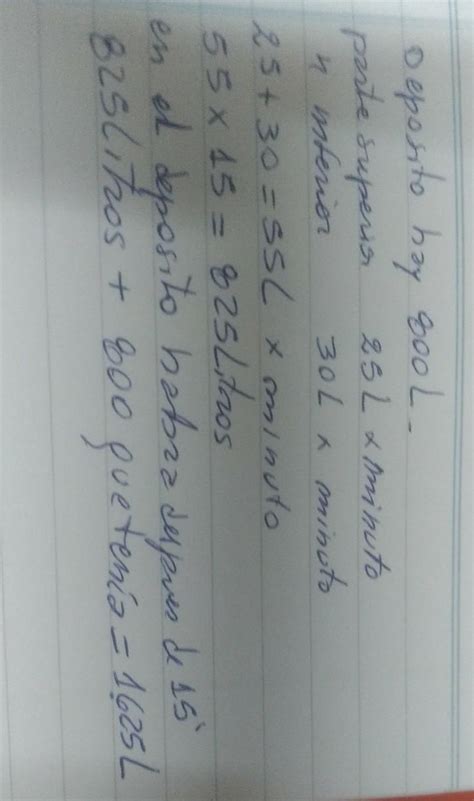 Deposito hay 800L.
parte superior 25L x minuto
" inferior 30L x minuto
25 + 30 = 55L x minuto
55 x 15 = 825Litros
en el deposito habra despues de 15'
825Litros + 800 que tenia = 1.625L